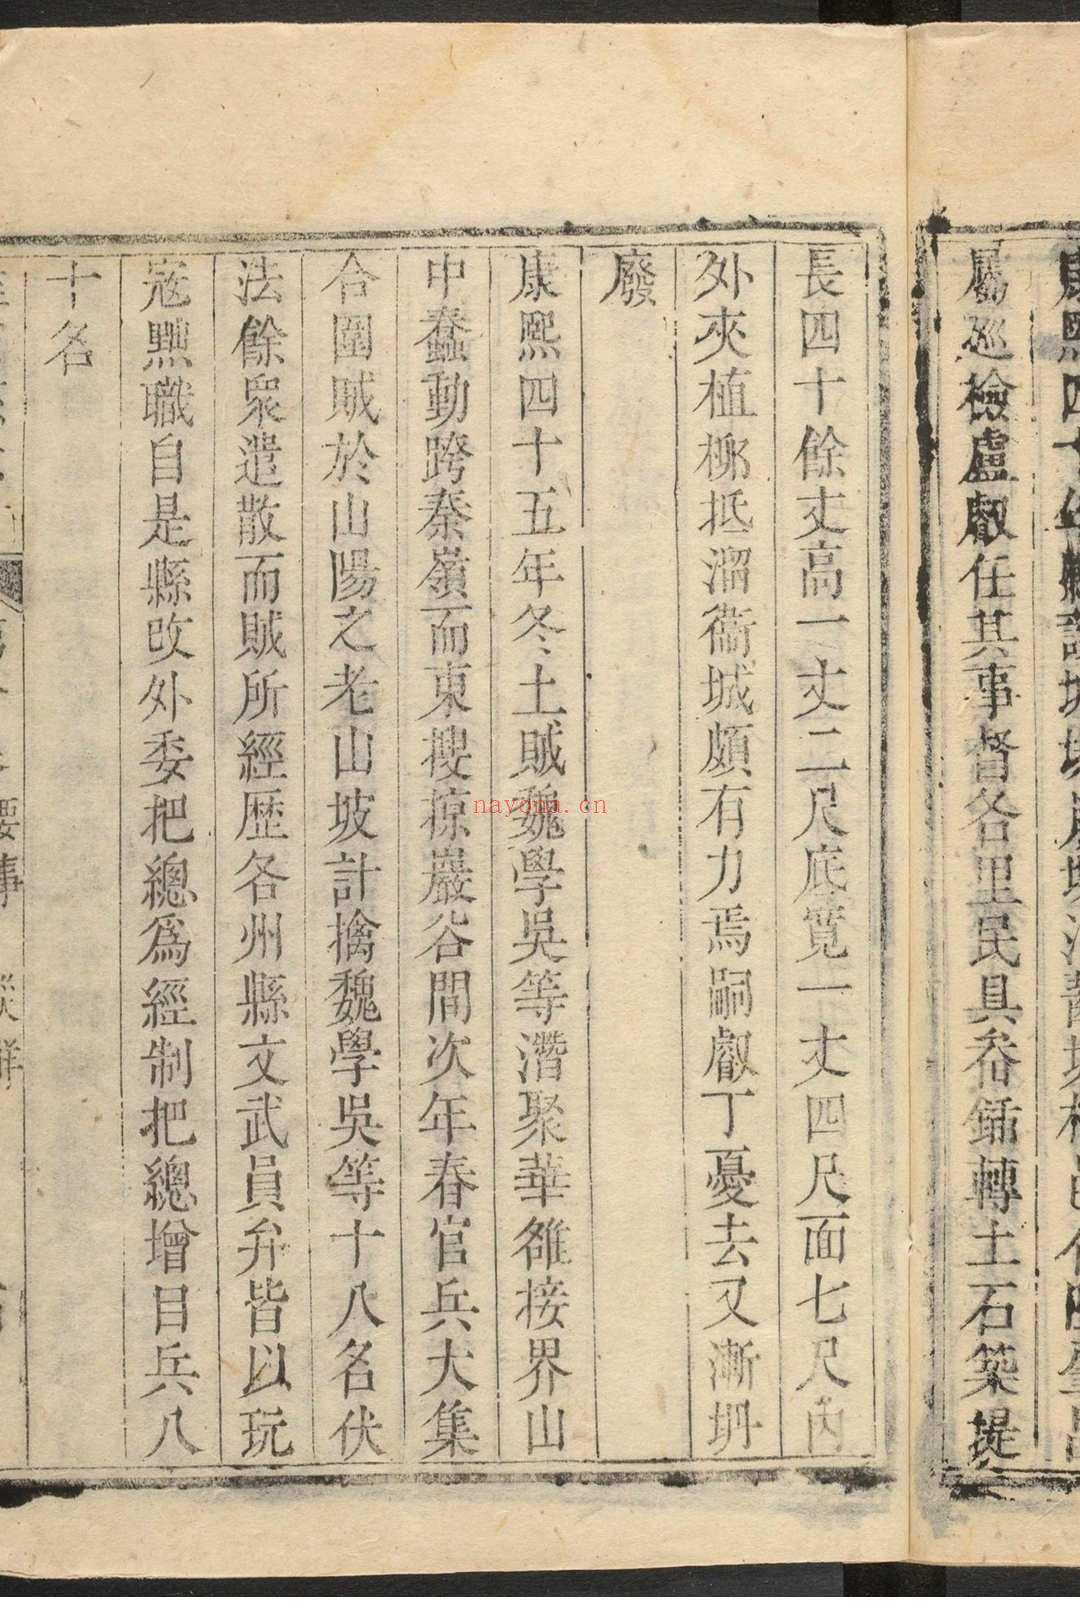 屬巡檢盧叡任其事督各里民具畚鍤轉土石築堤
長四十餘丈高一丈二尺底寬一丈四尺面七尺內
外夾植栁抵溜衞城頗有力焉嗣叡丁憂去又漸坍
廢
康熙四十五年冬土賊魏學吳等潛聚華雒接界山
中蠢動跨秦嶺而東搜掠巖谷間次年春官兵大集
合圍賊於山陽之老山坡計擒魏學吳等十八名伏
法餘衆遣散而賊所經歷各州縣文武員弁皆以玩
寇黜職自是縣改外委把總爲經制把總增目兵八
十名
nayona.cn